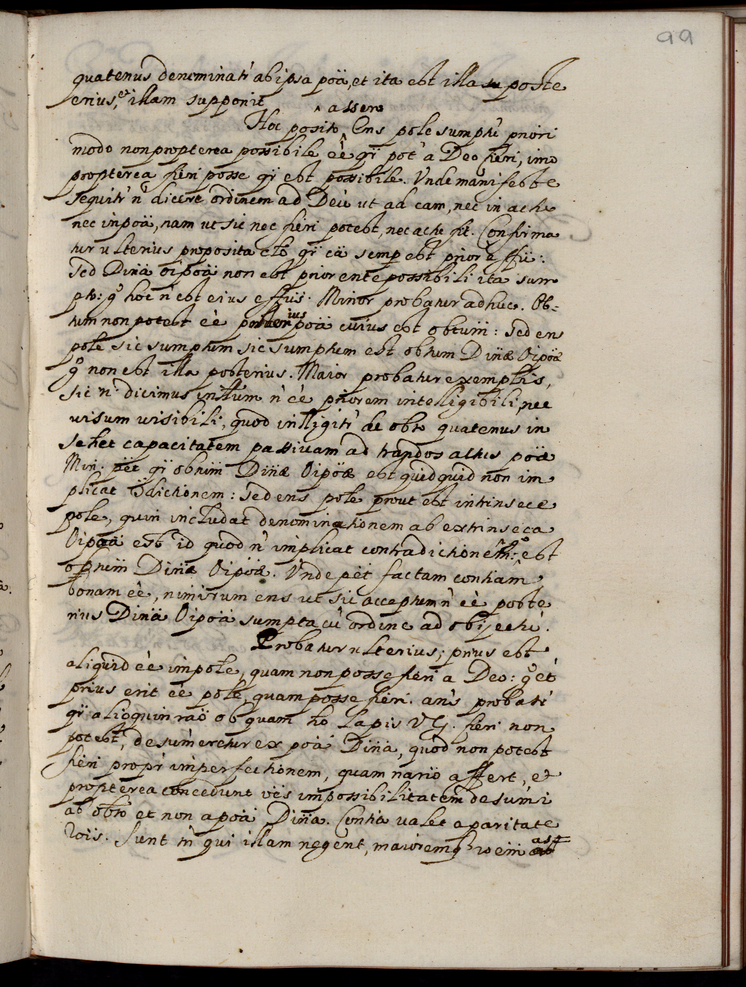 99
quatenus denominati' ab ipsa poä, et ita est illa poste
erius, et illam supponit
assero
Hoc posito Ens pole sumptū priori
modo non propterea possibile ēē qr̃ pot' a Deo fieri, imo
propterea fieri posse qr̃ est possibile. Unde manifeste
sequitr' n' dicere ordinem ad Deū ut ad eam, nec in actu
nec in poä, nam ut sic nec fieri potest, nec actu fit. Confirma
tur ulterius proposita qr̃ cä semp est prior effū:
sed Dinä oipoä non est prior ente possibili ita sum
pto: gº hoc n' est eius effūs. Maior probatur adhuc. Ob-
tum non potest ēē poä cuius est obtum: sed ens
pole sic sumptum sic sumptum est obtum Dinæ Oipoæ
gº non est illa posterius. Maior probatur exemplis,
sic n' dicimus n' ēē priorem intelligibili, nec
visum visibili, quod intlligitr' de obto quatenus in
se het capacitatem passivam ad actus poæ
Min: qr̃ obtum Dinæ Oipoæ est quidquid non im
plicat Ɔdictionem: sed ens pole prout est intrinsece
pole, quin includat denominationem ab extrinseca
Oipoä est id quod n' implicat contradictionem: gº est
obtum Dinæ Oipoæ. Unde pët factam
bonam ēē, nimirum ens ut sic acceptum n' ēē poste
rius Dinä Oipoä sumpta cū ordine ad objectū.
Probatur ulterius; prius est
aliquid ēē impole, quam non posse fieri a Deo: gº et
prius erit ēē pole, quam posse fieri. ans probati'
qr̃ alioquin raö ob quam lapis V.G. fieri non
potest, desumeretur ex poä Dinä, quod non potest
fieri propr' imperfectionem, quam affert, et
propterea concedunt impossibilitatem desumi
ab obto et non a poä Dinä. valet a paritate
rõis. Sunt tn' qui illam negent, maioremq